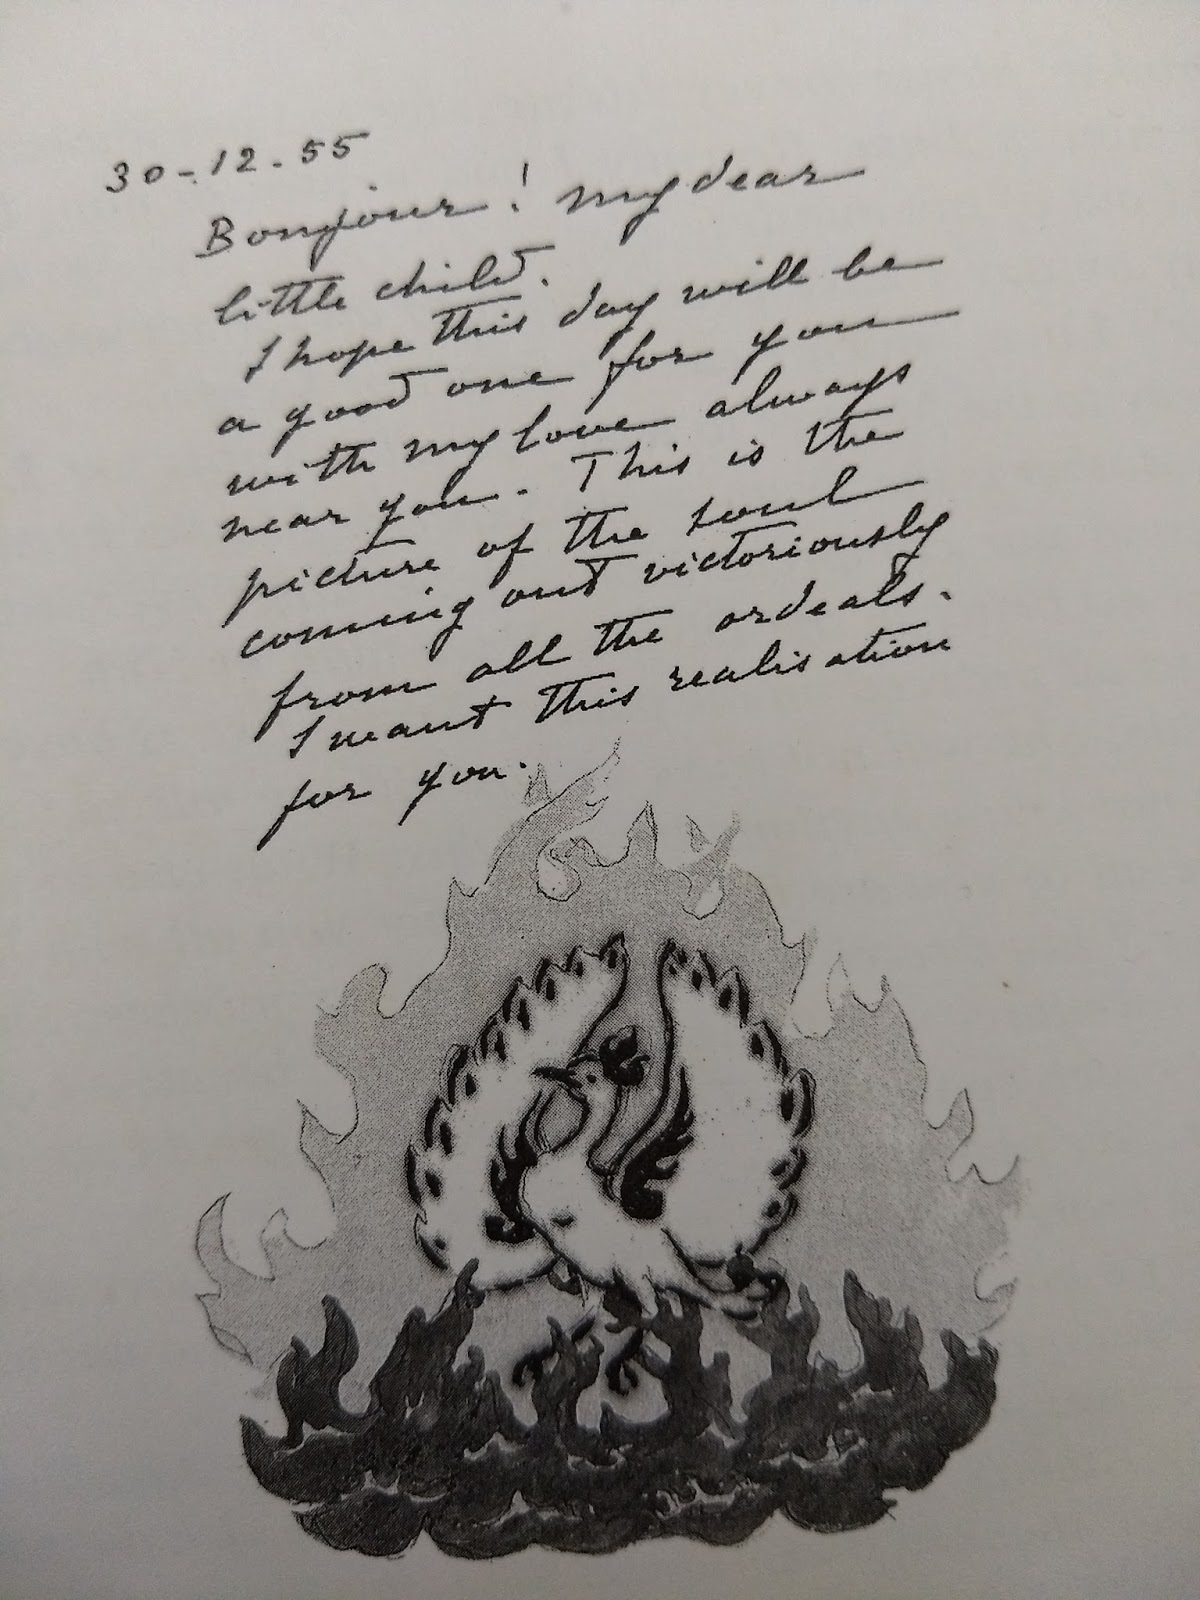 30-12-55
Bonjour! my dear
little child.
I hope this day will be
a good one for you
with my love always
near you. This is the
picture of the soul
coming out victoriously
from all the ordeals.
I want this realisation
for you.